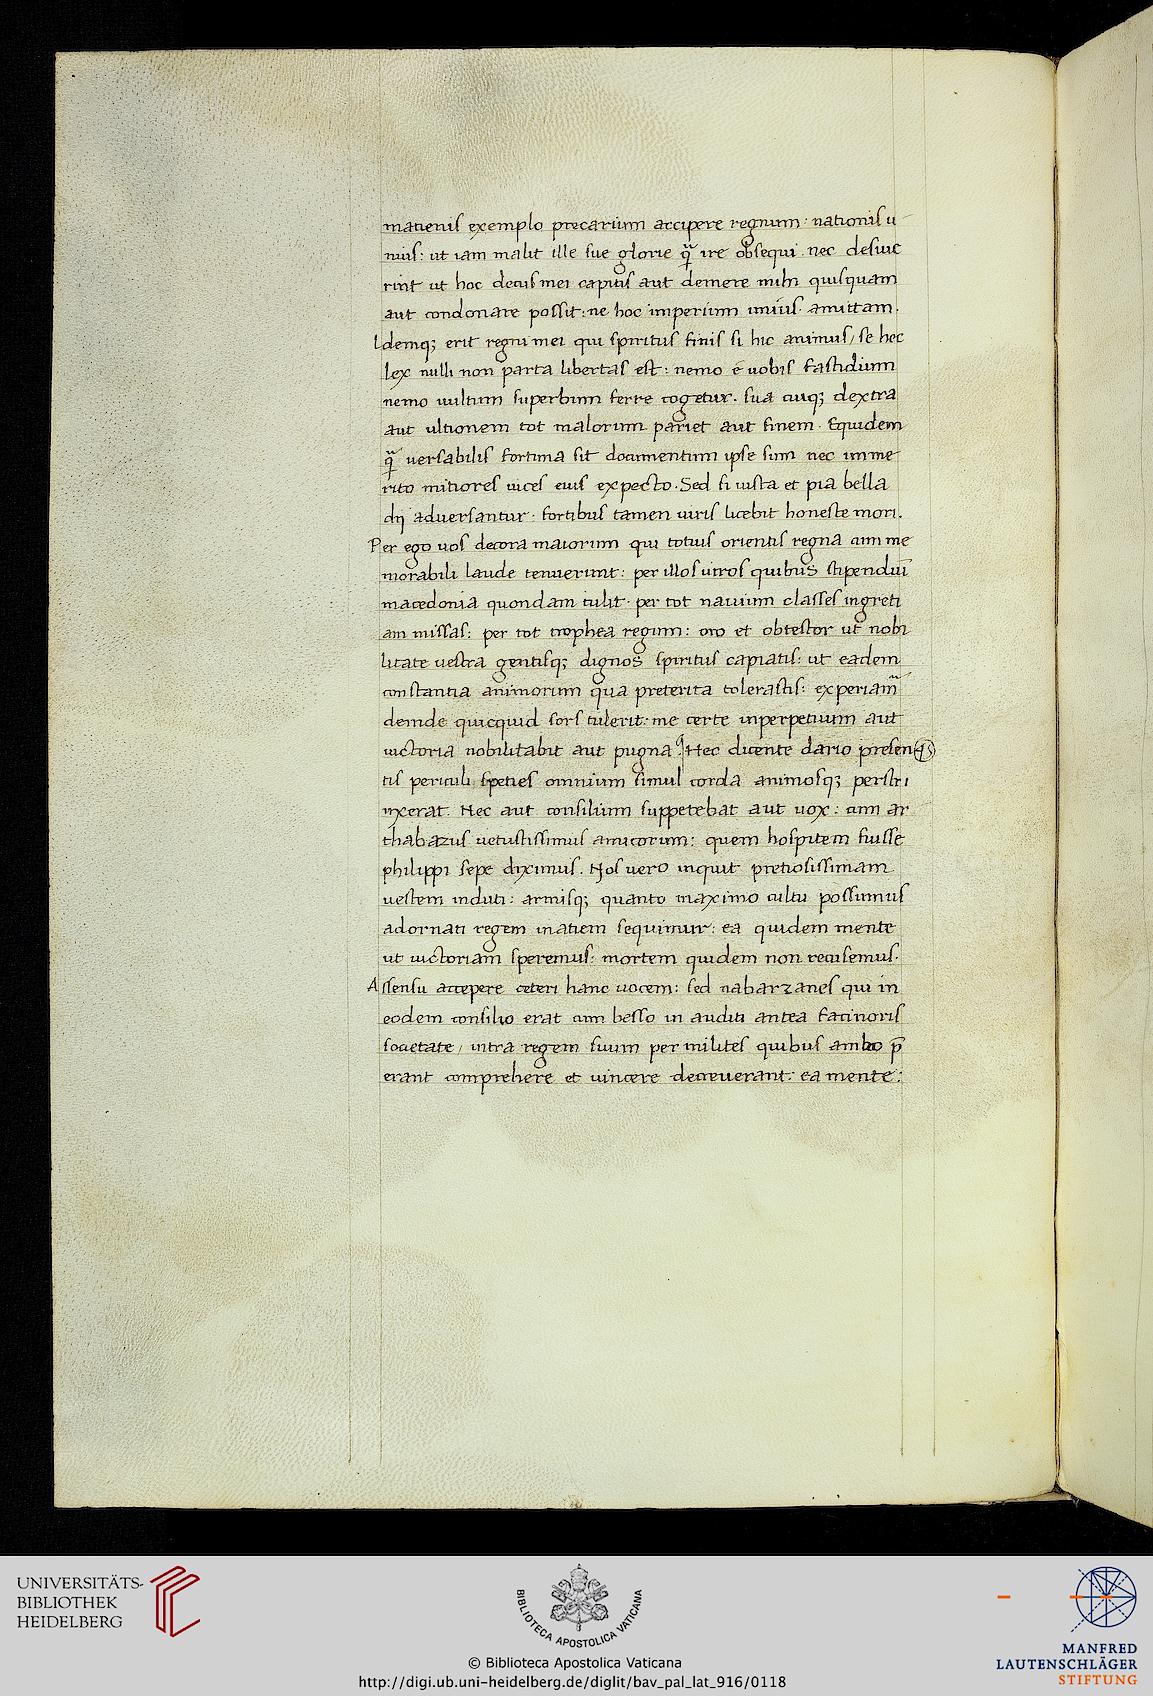 matienis exemplo precarium accipere regnum: nationis u
nius: ut iam malit ille sue glorie qͣ ire obsequi. nec desiue
rint ut hoc decus mei capitis aut demere mihi quisquam
aut condonare possit: ne hoc imperium uiuus amittam.
Idemq; erit regni mei qui spiritus finis si hic animus / se hec
lex nulli non parta libertas est: nemo e uobis fastidium
nemo uultum superbum ferre cogetur. sua cuiq; dextra
aut ultionem tot malorum pariet aut finem. Equidem
qͣ uersabilis fortuna sit documentum ipse sum nec imme
rito mitiores uices eius expecto. Sed si iusta et pia bella
dij aduersantur: fortibus tamen uiris licebit honeste mori.
Per ego uos decora maiorum qui totius orientis regna cum me
morabili laude tenuerunt: per illos uiros quibus stipendiū
macedonia quondam tulit. per tot nauium classes in greti
am missas: per tot trophea regum: oro et obtestor ut nobi
litate uestra gentisq; dignos spiritus capiatis: ut eadem
constantia animorum qua preterita tolerastis: experiamͥ
deinde quicquid sors tulerit: me certe inperpetuum aut
uictoria nobilitabit aut pugna. Hec dicente dario presen
tis periculi speties omnium simul corda animosq; perstri
nxerat. Nec aut consilium suppetebat aut uox: cum ar
thabazus uetustissimus amicorum: quem hospitem fuisse
philippi sepe diximus. Nos uero inquit pretiosissimam
uestem induti: armisq; quanto maximo cultu possumus
adornati regem inatiem sequimur: ea quidem mente
ut uictoriam speremus: mortem quidem non recusemus.
Assensu accepere ceteri hanc uocem: sed nabarzanes qui in
eodem consilio erat cum besso in auditi antea facinoris
societate / intra regem suum per milites quibus ambo p̄
erant comprehere et uincere decreuerant: ea mente:
UNIVERSITÄTS-
BIBLIOTHEK
HEIDELBERG
BIBLIOTECA APOSTOLICA VATICANA
MANFRED
LAUTENSCHLÄGER
STIFTUNG
© Biblioteca Apostolica Vaticana
http://digi.ub.uni-heidelberg.de/diglit/bav_pal_lat_916/0118